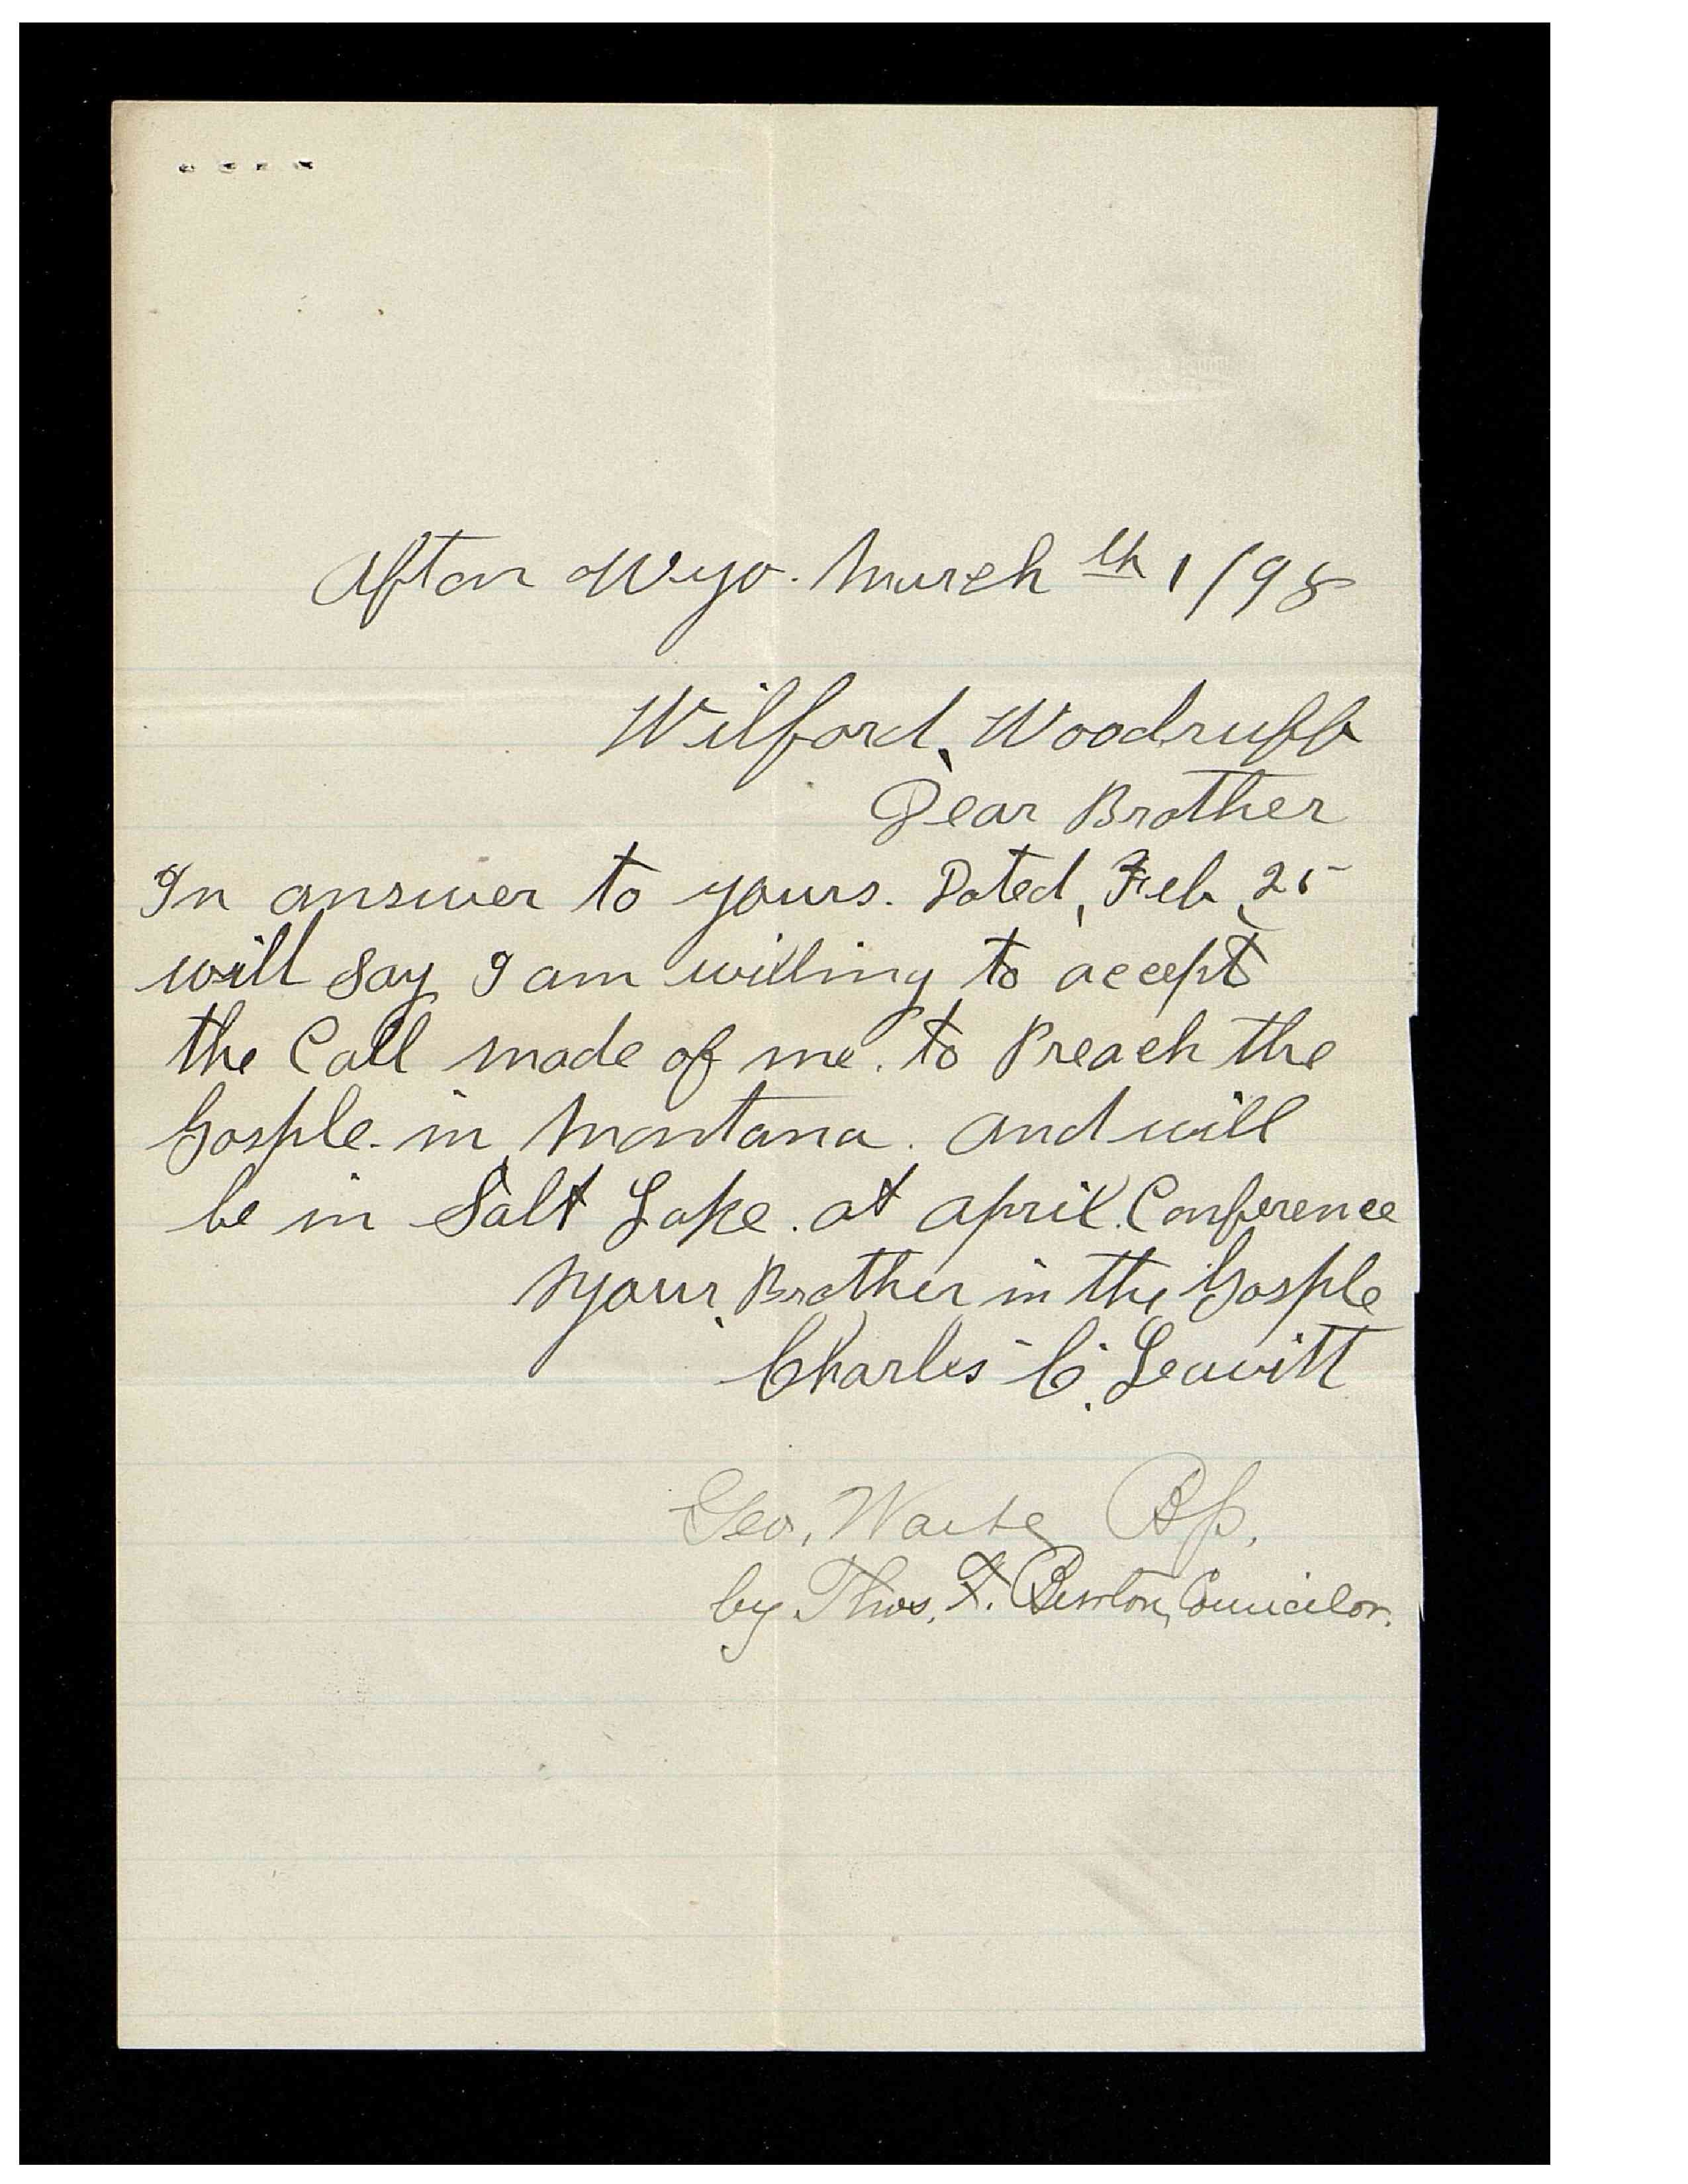 Afton Wyo. March th 1/98
Wilford, Woodruff
Dear Brother
In answer to yours. Dated, Feb, 25
will say I am willing to accept
the Call made of me. to Preach the
Gosple. in Montana. and will
be in Salt Lake. at april. Conference
your. Brother in the Gosple
Charles C. Leavitt
Geo, Waite Bp.
by Thos. F. Burton, Councilor.